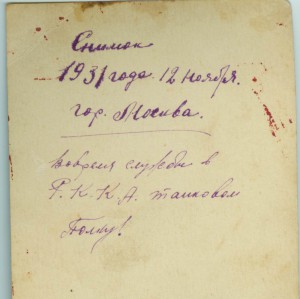 Снимок
1931 года 12 ноября.
гор. Москва.
вовремя службы в
Р.К.К.А. танковом
Полку!